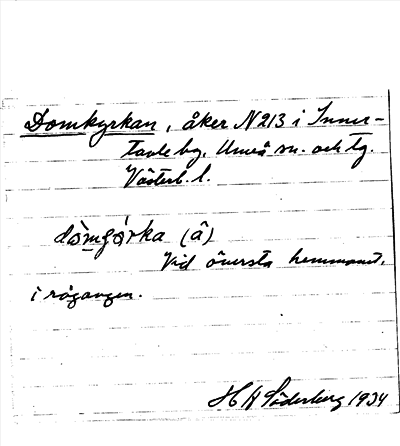 Domkyrkan, åker N213 i Inner-
Tavle by, Umeå sn. och tg
Västerb. l.
dòmgórka (â)
Vid översta hemmanet,
i rågången.
H A Söderberg 1934